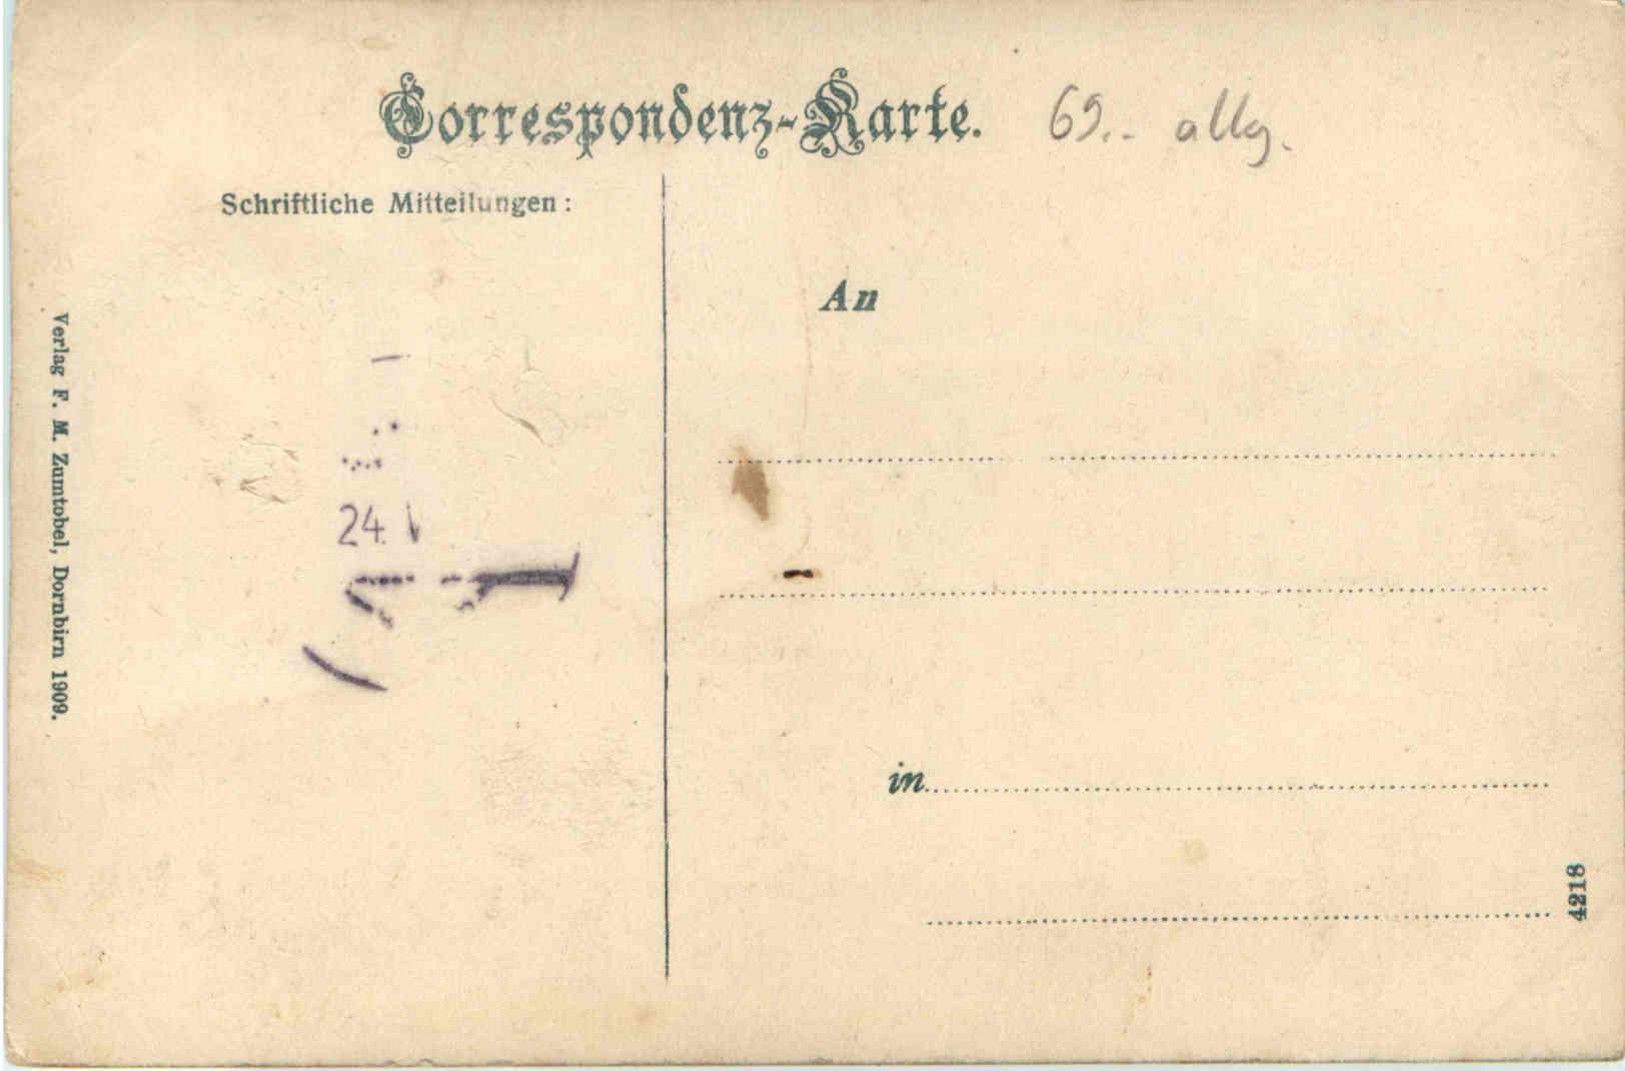 Correspondenz-Karte.
69.- allg.
Schriftliche Mitteilungen:
An
24.
in
Verlag F. M. Zumtobel, Dornbirn 1909.
4218